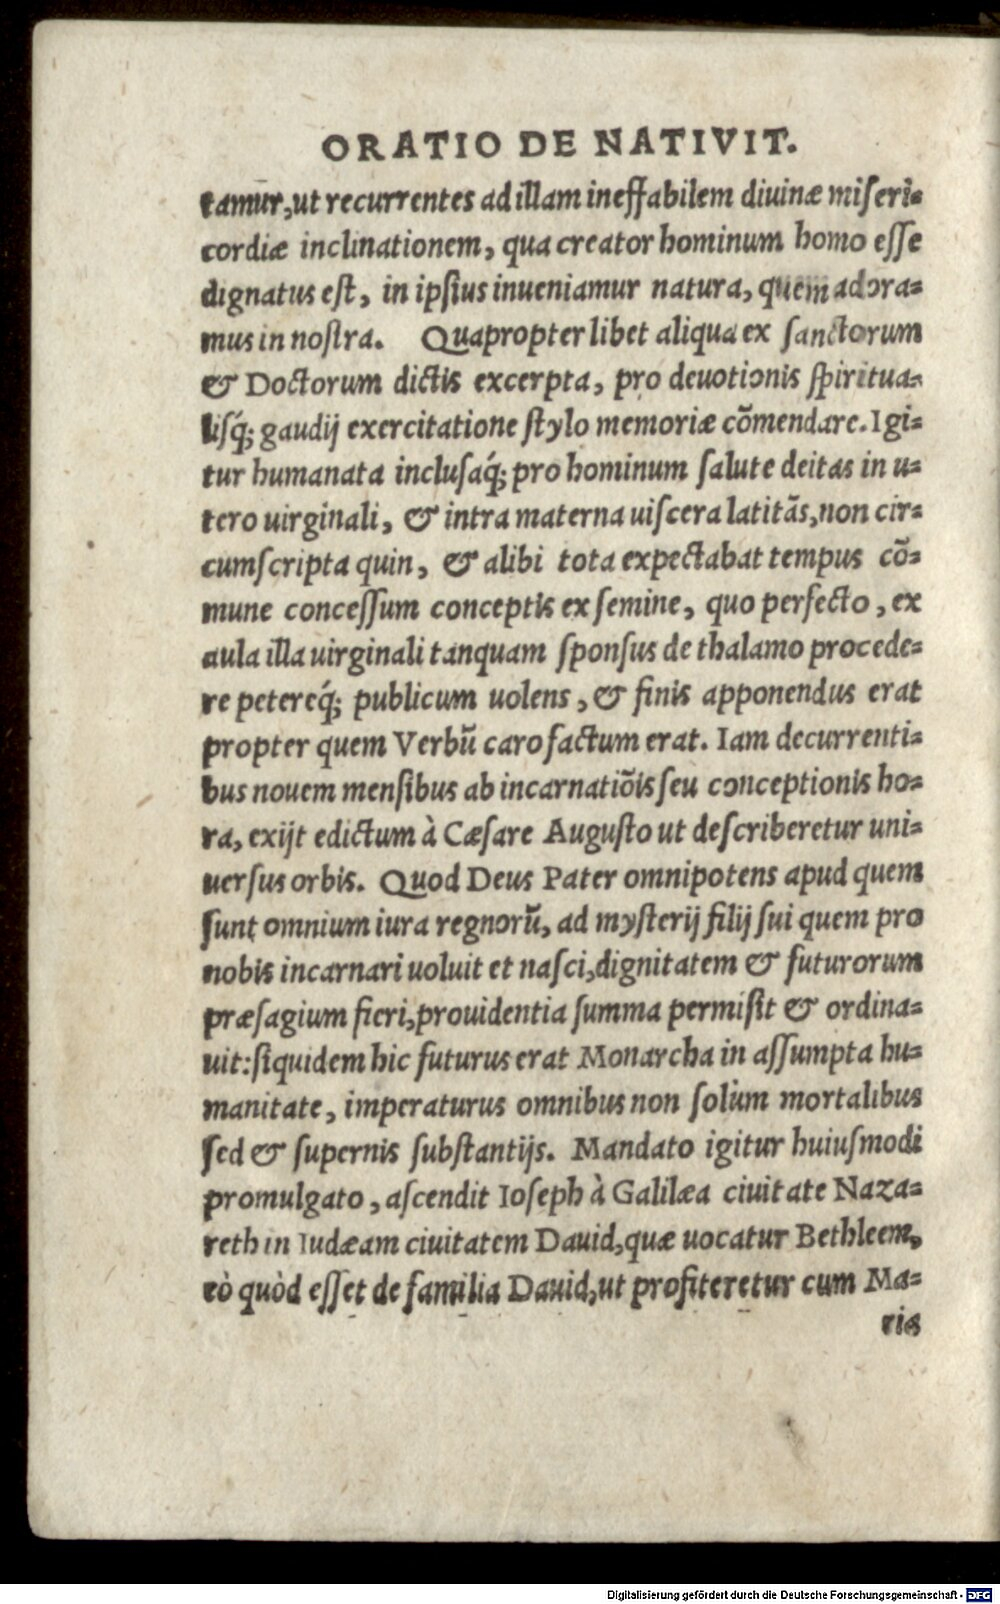 ORATIO DE NATIVIT.
tamur, ut recurrentes ad illam ineffabilem diuinæ miseri-
cordiæ inclinationem, qua creator hominum homo esse
dignatus est, in ipsius inueniamur natura, quem adora-
mus in nostra. Quapropter libet aliqua ex sanctorum
& Doctorum dictis excerpta, pro deuotionis spiritua-
lisq́; gaudij exercitatione stylo memoriæ cõmendare. Igi-
tur humanata inclusaq́; pro hominum salute deitas in u-
tero uirginali, & intra materna uiscera latitãs, non cir-
cumscripta quin, & alibi tota expectabat tempus cõ-
mune concessum conceptis ex semine, quo perfecto, ex
aula illa uirginali tanquam sponsus de thalamo procede-
re petereq́; publicum uolens, & finis apponendus erat
propter quem Verbũ caro factum erat. Iam decurrenti-
bus nouem mensibus ab incarnatiõis seu conceptionis ho-
ra, exijt edictum à Cæsare Augusto ut describeretur uni-
uersus orbis. Quod Deus Pater omnipotens apud quem
sunt omnium iura regnorũ, ad mysterij filij sui quem pro
nobis incarnari uoluit et nasci, dignitatem & futurorum
præsagium fieri, prouidentia summa permisit & ordina-
uit: siquidem hic futurus erat Monarcha in assumpta hu-
manitate, imperaturus omnibus non solùm mortalibus
sed & supernis substantijs. Mandato igitur huiusmodi
promulgato, ascendit Ioseph à Galilæa ciuitate Naza-
reth in Iudæam ciuitatem Dauid, quæ uocatur Bethleem,
eò quòd esset de familia Dauid, ut profiteretur cum Ma-
ria
Digitalisierung gefördert durch die Deutsche Forschungsgemeinschaft - DFG